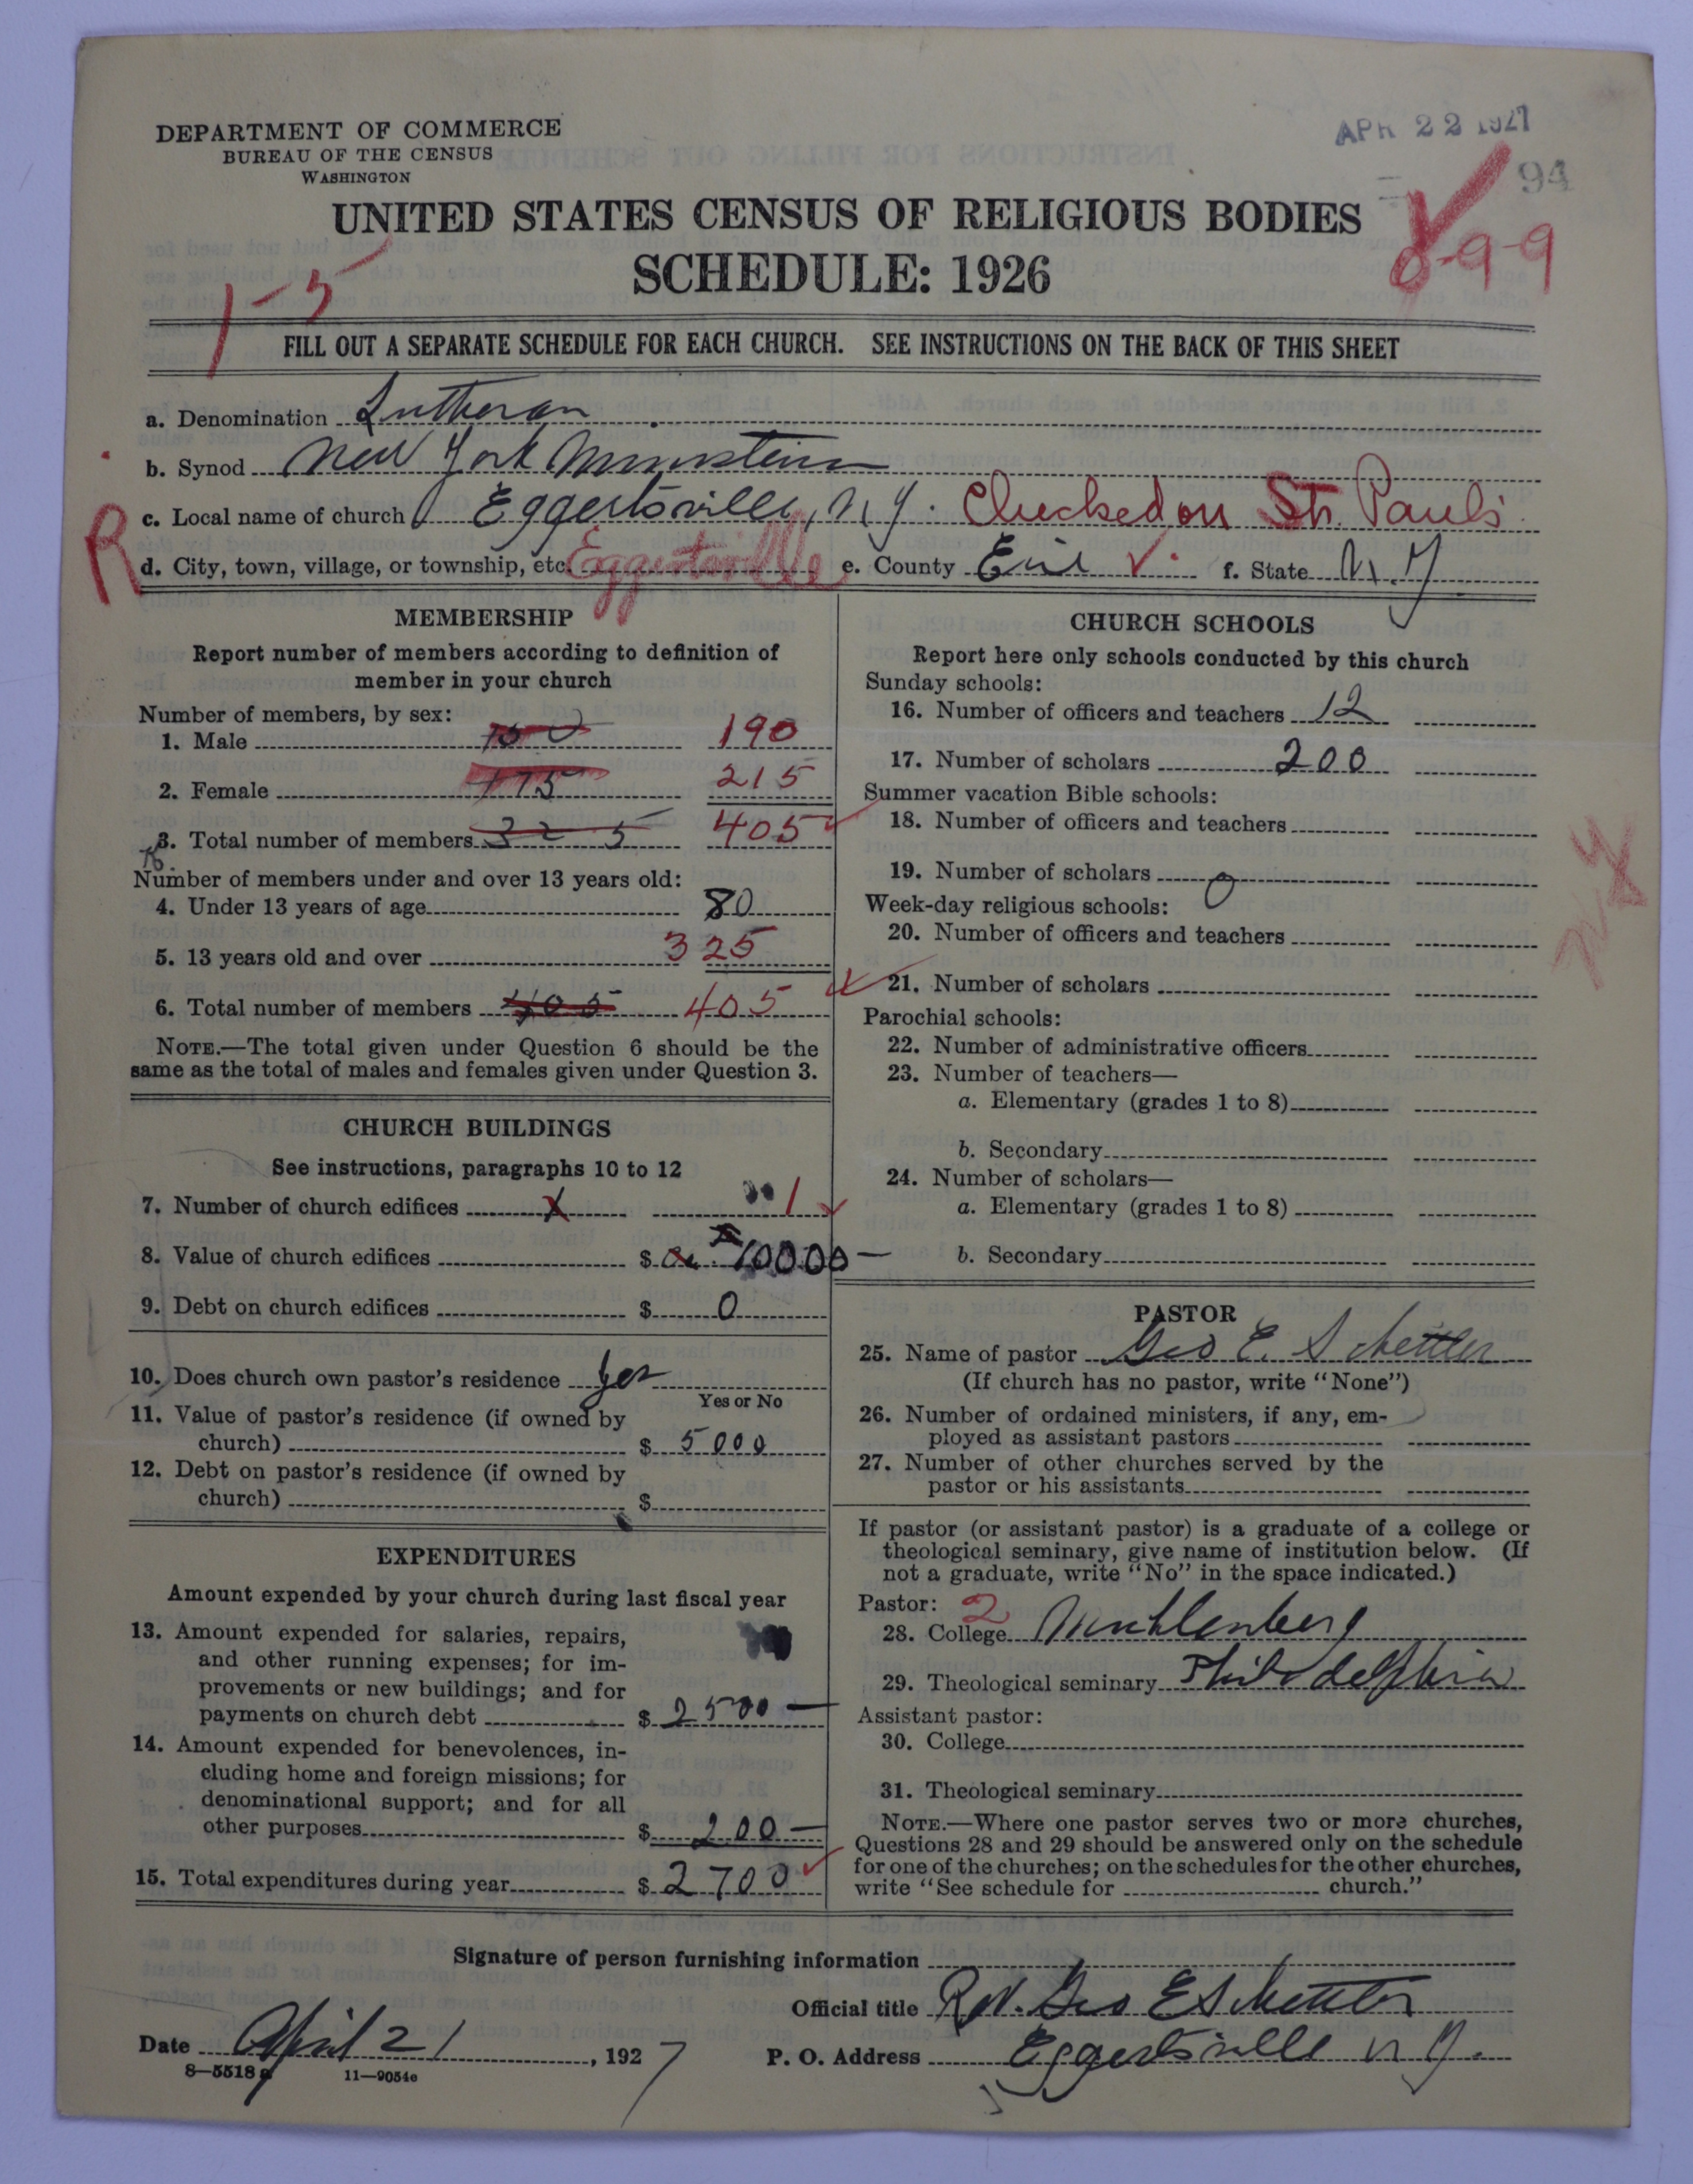 DEPARTMENT OF COMMERCE
BUREAU OF THE CENSUS
WASHINGTON
APR 22 1927
94
UNITED STATES CENSUS OF RELIGIOUS BODIES
SCHEDULE: 1926
1-5
8-9-9
FILL OUT A SEPARATE SCHEDULE FOR EACH CHURCH. SEE INSTRUCTIONS ON THE BACK OF THIS SHEET
a. Denomination Lutheran
b. Synod New York Ministerium
R
c. Local name of church Eggertsville, N.Y. Checked on St. Paul's
d. City, town, village, or township, etc. Eggertsville e. County Erie f. State N.Y
MEMBERSHIP
Report number of members according to definition of
member in your church
Number of members, by sex:
1. Male 150 190
2. Female 175 215
3. Total number of members 325 405
Number of members under and over 13 years old:
4. Under 13 years of age 80
5. 13 years old and over 325
6. Total number of members 405 405
NOTE.—The total given under Question 6 should be the
same as the total of males and females given under Question 3.
CHURCH BUILDINGS
See instructions, paragraphs 10 to 12
7. Number of church edifices 1
8. Value of church edifices $ 10000 —
9. Debt on church edifices $ 0
10. Does church own pastor's residence Yes
Yes or No
11. Value of pastor's residence (if owned by
church) $ 5000
12. Debt on pastor's residence (if owned by
church) $
EXPENDITURES
Amount expended by your church during last fiscal year
13. Amount expended for salaries, repairs,
and other running expenses; for im-
provements or new buildings; and for
payments on church debt $ 2500 —
14. Amount expended for benevolences, in-
cluding home and foreign missions; for
denominational support; and for all
other purposes $ 200 —
15. Total expenditures during year $ 2700
CHURCH SCHOOLS
Report here only schools conducted by this church
Sunday schools:
16. Number of officers and teachers 12
17. Number of scholars 200
Summer vacation Bible schools:
18. Number of officers and teachers
19. Number of scholars 0
Week-day religious schools:
20. Number of officers and teachers
21. Number of scholars
Parochial schools:
22. Number of administrative officers
23. Number of teachers—
a. Elementary (grades 1 to 8)
b. Secondary
24. Number of scholars—
a. Elementary (grades 1 to 8)
b. Secondary
NY
PASTOR
25. Name of pastor Geo E. Schettler
(If church has no pastor, write "None")
26. Number of ordained ministers, if any, em-
ployed as assistant pastors
27. Number of other churches served by the
pastor or his assistants
If pastor (or assistant pastor) is a graduate of a college or
theological seminary, give name of institution below. (If
not a graduate, write "No" in the space indicated.)
Pastor: 2
28. College Muhlenberg
29. Theological seminary Philadelphia
Assistant pastor:
30. College
31. Theological seminary
NOTE.—Where one pastor serves two or more churches,
Questions 28 and 29 should be answered only on the schedule
for one of the churches; on the schedules for the other churches,
write "See schedule for church."
Signature of person furnishing information
Official title Rev. Geo E Schettler
Date April 21, 1927
P. O. Address Eggertsville N.Y.
8—5518a 11—9054c